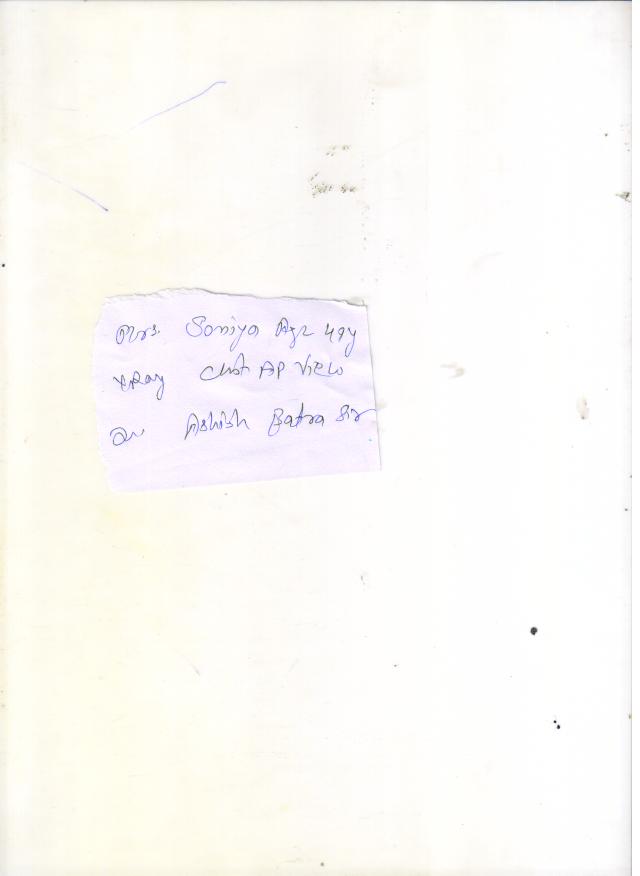 Mrs. Soniya Age 49y
xRay Chst AP View
Dr Ashish Batra Sir